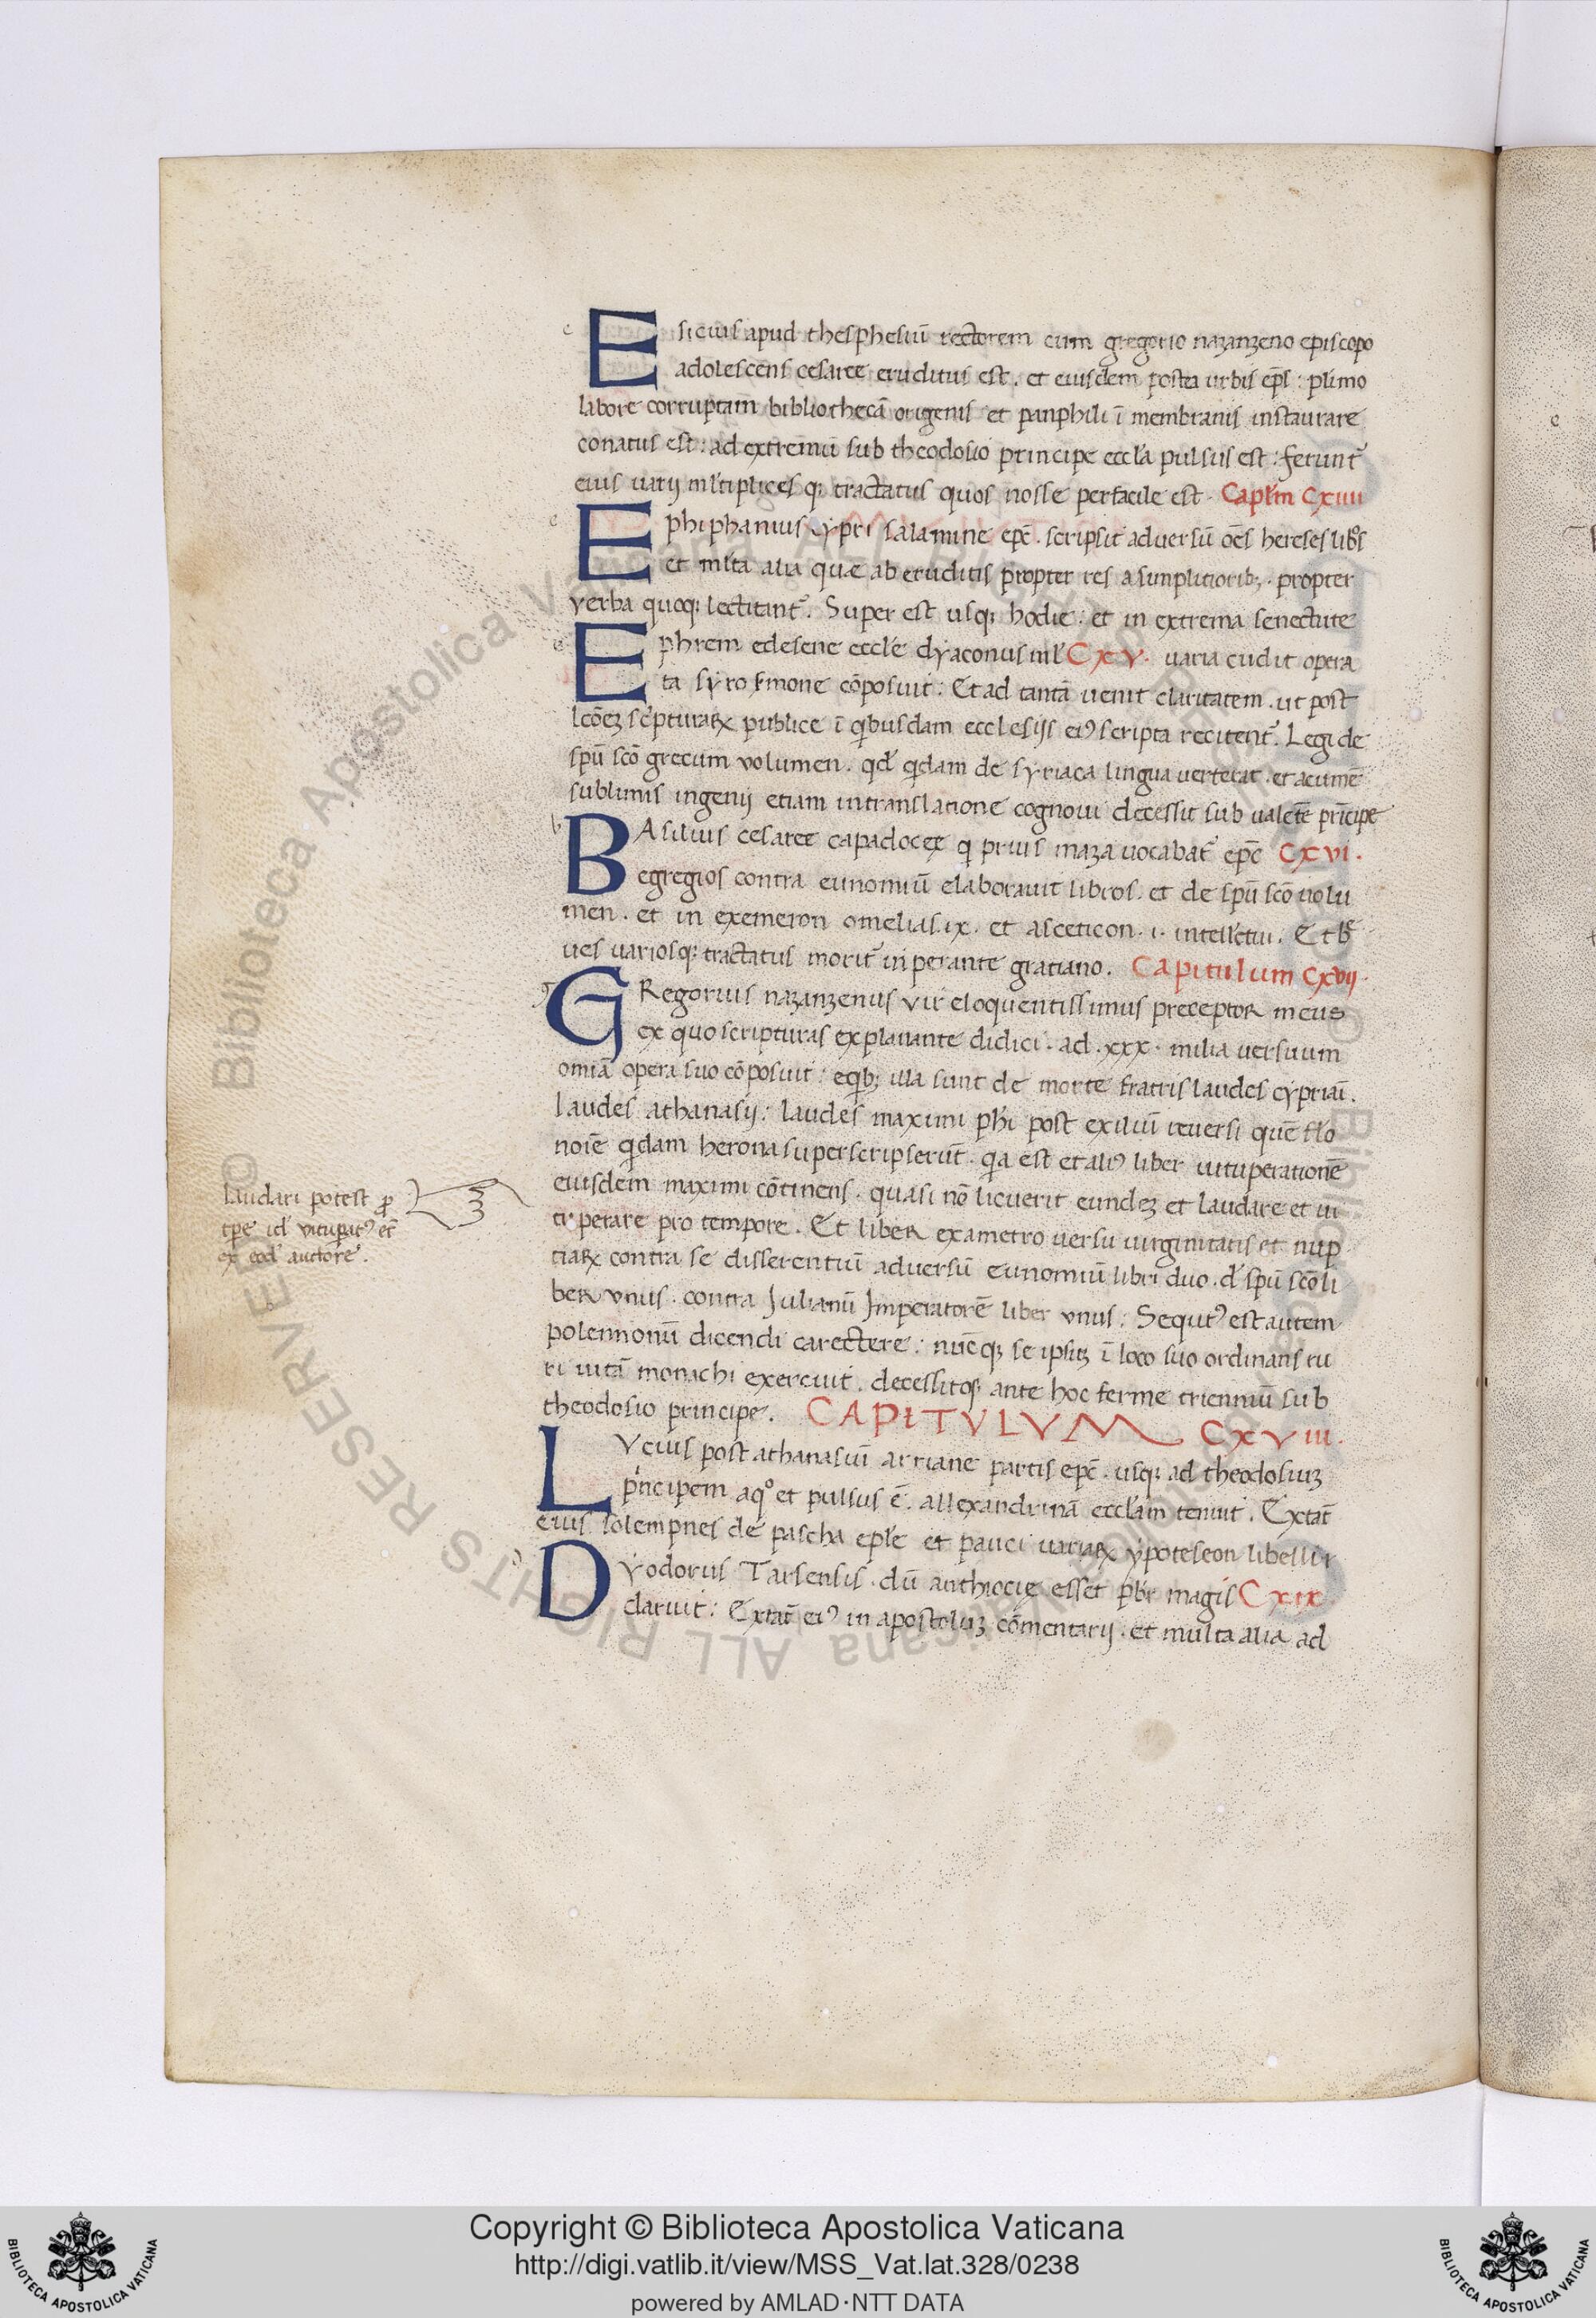 e Esicius apud thesphesiū rectorem cum gregorio nazanzeno episcopo
adolescens cesaree eruditus est . et eiusdem postea urbis ep̄s : pl̄imo
labore corruptam bibliothecā origenis et panphili ī membranis instaurare
conatus est : ad extremū sub theodosio principe eccl̄a pulsus est : ferunt᷑
eius uarij ml̄tiplicesqꝫ tractatus quos nosse perfacile est . Capl̄m CXIIII
e Ephiphanius cypri salamine epc̄ . scripsit adversū oēs hereses lib̄s
et ml̄ta alia quae ab eruditis propter res a simplitioribꝫ . propter
verba quoqꝫ lectitant᷑ . Super est usqꝫ hodie : et in extrema senectute
varia cudit opera
e Ephrem edesene eccl̄e dyaconus ml̄ CXV .
ta syro ſmone cōposuit : Et ad tantā uenit claritatem . ut post
lcōeꝫ sc̄pturaꝝ publice ī qibusdam ecclesijs eiꝰ scripta recitent᷑ . Legi de
spū scō grecum volumen . qd̄ qidam de syriaca lingua verterat . et acumē
sublimis ingenij etiam in translatione cognovi decessit sub valēte prīcipe
b BAsilius cesaree capadoceę q prius maza vocabat᷑ epc̄ CXVI .
egregios contra eunomiū elaboravit libros . et de spū scō volu
men . et in exemeron omelias . ix . et asceticon . i . intellectui . Et b̄
ues variosqꝫ tractatus morit᷑ inperante gratiano . Capitulum CXVII .
g GRegorius nazanzenus vir eloquentissimus preceptor meus
ex quo scripturas explanante didici . ad . xxx . milia versuum
omiā opera suo cōposuit : eqibꝫ illa sunt de morte fratris laudes cypriaī .
laudes athanasij : laudes maximi phi post exiliū reversi quē fl̄o
noīe qidam herona superscripserūt . qa est et aliꝰ liber vituperationē
eiusdem maximi cōtinens . quasi nō licuerit eundeꝫ et laudare et vi
tuperare pro tempore . Et liber exametro versu virginitatis et nup
tiaꝝ contra se disserentiū adversū eunomiū libri duo . d̄ spū scō li
ber vnus . contra Julianū Imperatorē liber vnus : Sequtꝰ est autem
polemonū dicendi carectere : nūcqꝫ se ipsuꝫ ī loco suo ordinans ru
ri uitā monachi exercuit . decessitqꝫ ante hoc ferme trienniū sub
theodosio principe . CAPITVLVM CXVIII .
LVcius post athanasiū arriane partis epc̄ . usqꝫ ad theodosiuꝫ
pīncipem aqo et pulsus ē . allexandrinā eccl̄am tenuit . Extāt
eius solempnes de pascha epl̄e et pauci variaꝝ ypoteseon libelli
D DYodorus Tarsensis . dū anthiocię esset pbr̄ magis CXIX
claruit : Extāt eiꝰ in apostoluꝫ cōmentarij . et multa alia ad
laudari potest pro
tp̄e id̄ vituperatꝰ et̄
ex eod̄ auctore .
© Biblioteca Apostolica Vaticana ALL RIGHTS RESERVED
Copyright © Biblioteca Apostolica Vaticana
http://digi.vatlib.it/view/MSS_Vat.lat.328/0238
powered by AMLAD·NTT DATA
BIBLIOTECA APOSTOLICA VATICANA
BIBLIOTECA APOSTOLICA VATICANA